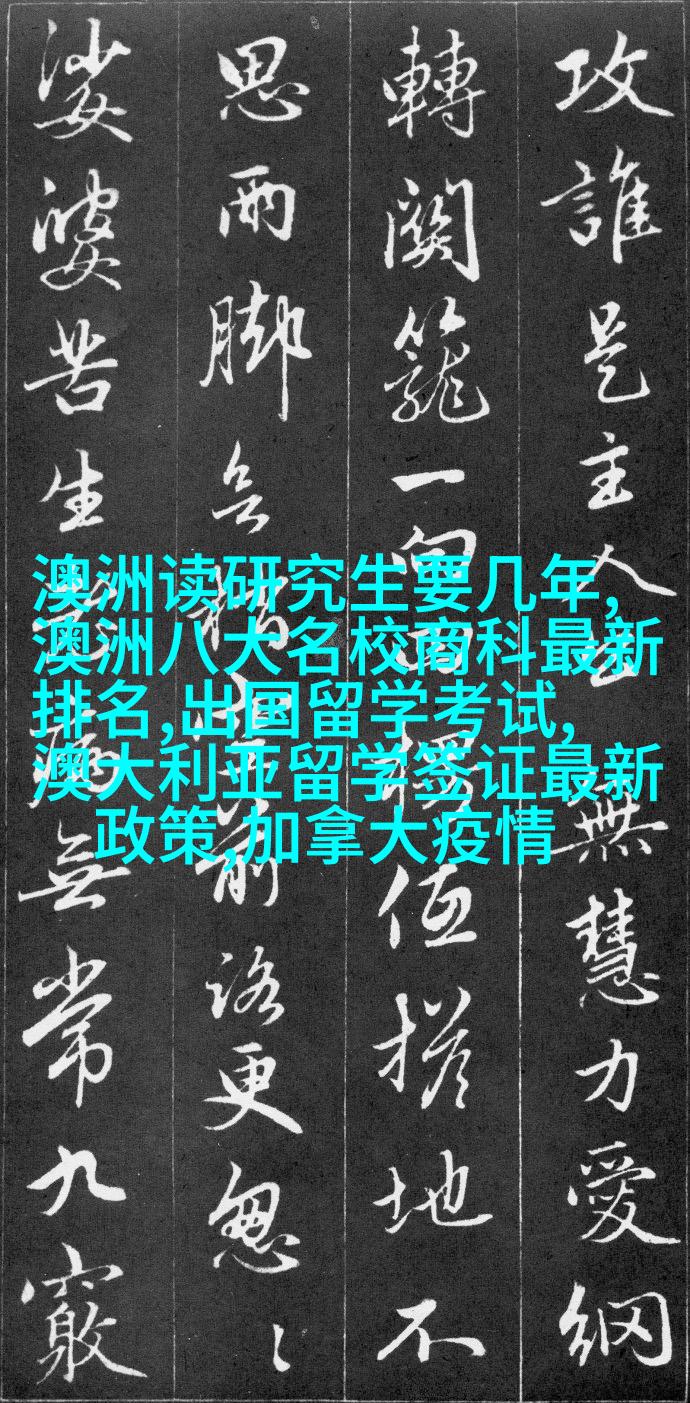 澳洲读研究生要几年,
澳洲八大名校商科最新
排名,出国留学考试,
澳大利亚留学签证最新
政策,加拿大疫情
攻誰是主人無慧力愛網
轉關籠一向地不
思兩脚前路更忽
娑婆苦生無常九竅